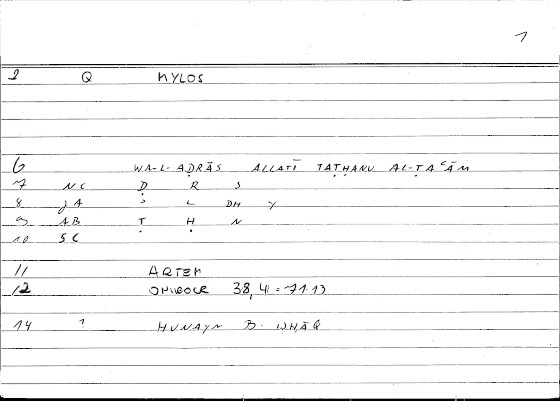 1
2 Q MYLOS
6 WA-L-AḌRĀS ALLATĪ TAṬḤANU AL-ṬAʿĀM
7 NC Ḍ R S
8 JA L DH Y
9 AB Ṭ Ḥ N
10 SC
11 ARTEM
12 ONIROCR 38,4 = 71.13
14 ? ḤUNAYN B.